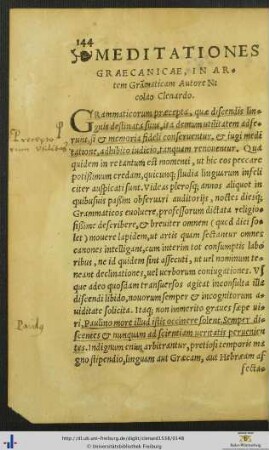 144
MEDITATIONES
GRAECANICAE, IN AR-
tem Grãmaticam Autore Ni
colao Clenardo.
GRammaticorum præcepta, quæ discendis lin-
guis destinata sunt, ita demum utilitatem adfe-
runt, si & memoria fideli conseruentur, & iugi medi
tatione, adhibito iudicio, tanquam renouentur. Qua
quidem in re tantum est momenti, ut hic eos peccare
potissimum credam, quicunq; studia linguarum infeli
citer auspicati sunt. Videas plerosq; annos aliquot in
quibusuis passim obuersari auditorijs, noctes diesq;
Grammaticos euoluere, professorum dictata religio
sissime describere, & breuiter omnem (quod dici so-
let) mouere lapidem, ut artis quam sectantur omneis
canones intelligant, cum interim tot consumptis labo
ribus, ne id quidem sint assecuti, ut uel nominum te-
neant declinationes, uel uerborum coniugationes. V
que adeo quosdam transuersos agitat inconsulta illa
discendi libido, nouorum semper & incognitorum a-
uiditate solicita. Itaq; non immerito graues sæpe ui-
ri, Paulino more illud istis occinere solent, Semper di-
scentes & nunquam ad scientiam ueritatis peruenien
tes. Indignum enim arbitrantur, pretiosi temporis ma
gno stipendio, linguam aut Græcam, aut Hebræam af
fecta-
http://dl.ub.uni-freiburg.de/diglit/clenard1538/0148
© Universitätsbibliothek Freiburg